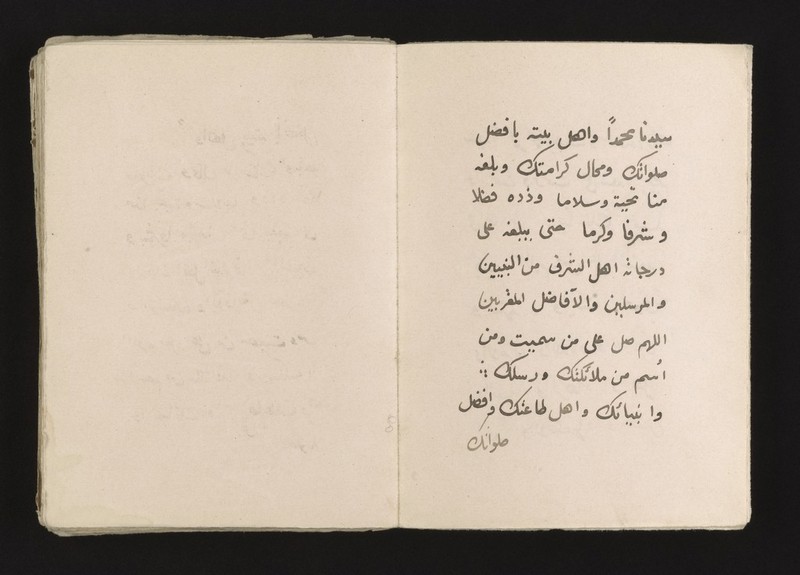 سيدنا محمداً واهل بيته بافضل
صلواتك ومحال كرامتك وبلغه
منا تحية وسلاما وزده فضلا
وشرفا وكرما حتى يبلغه على
درجاته اهل الشرف من النبيين
والمرسلين والآفاضل المقربين
اللهم صل على من سميت ومن
اسم من ملائكتك ورسلك
وانبيائك واهل طاعتك وافضل
صلواتك